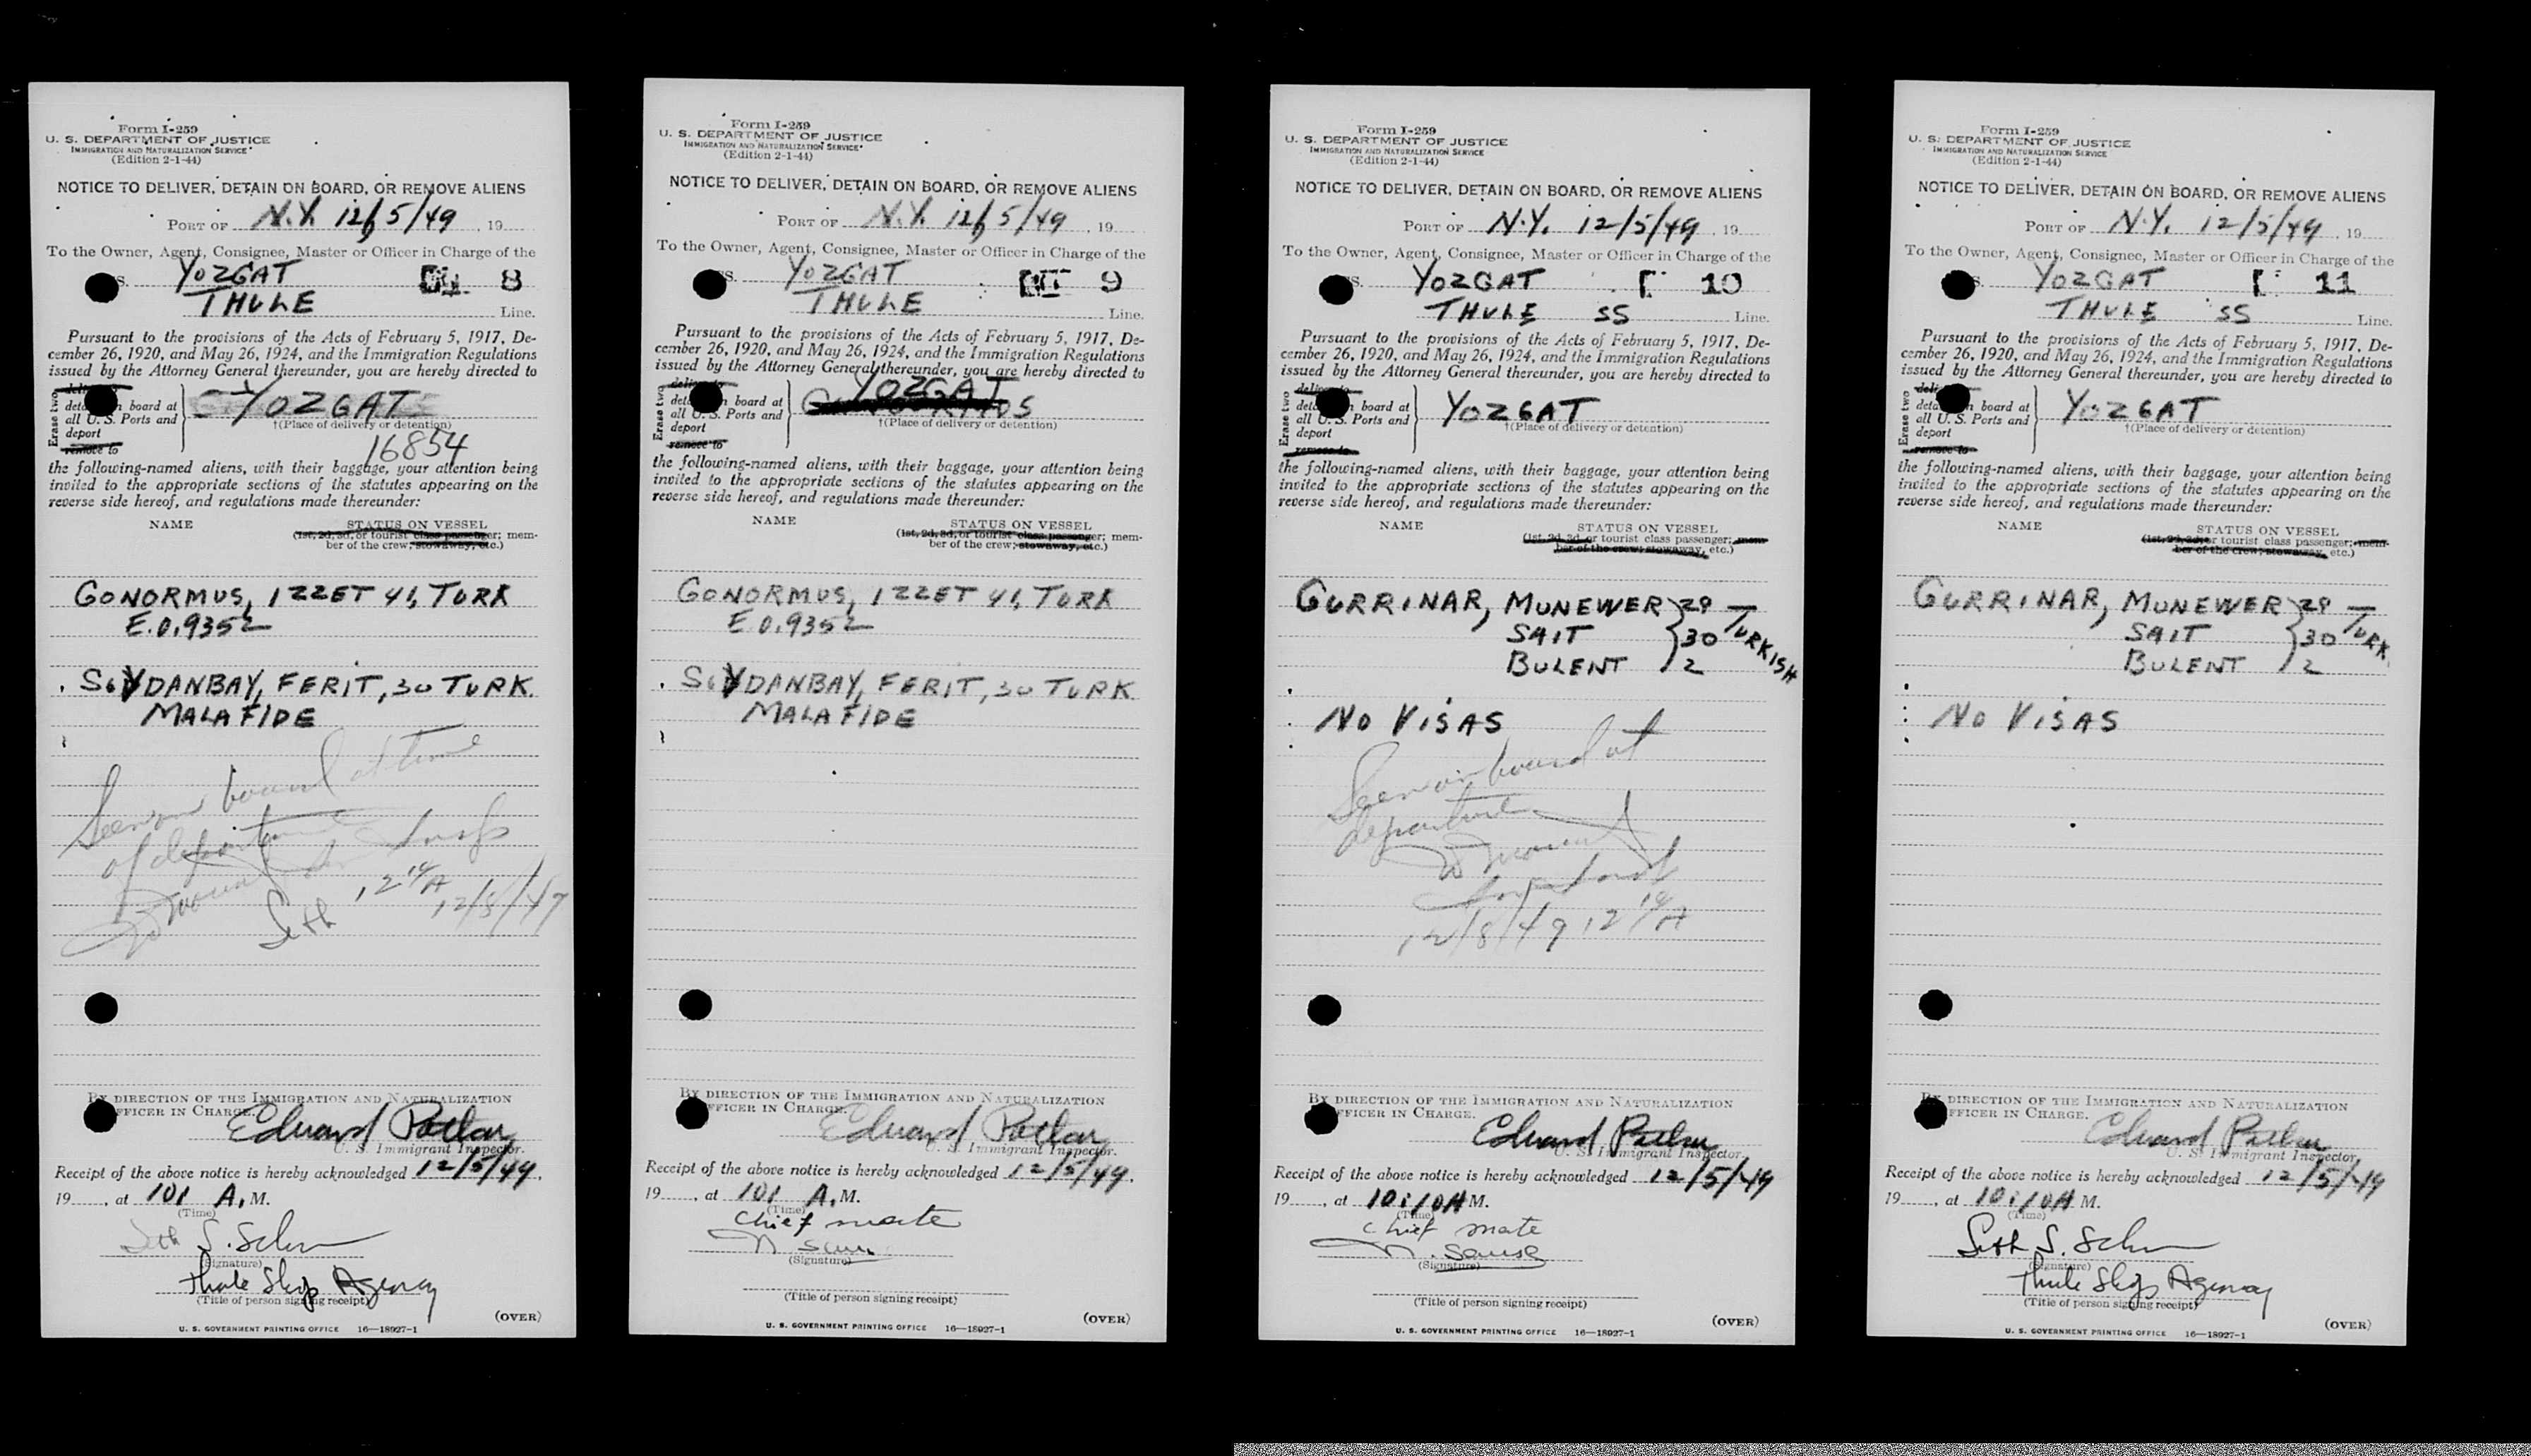 Form I-259
U. S. DEPARTMENT OF JUSTICE
IMMIGRATION AND NATURALIZATION SERVICE
(Edition 2-1-44)
NOTICE TO DELIVER, DETAIN ON BOARD, OR REMOVE ALIENS
PORT OF N.Y. 12/5/49, 19
To the Owner, Agent, Consignee, Master or Officer in Charge of the
S. YOZGAT 8
THULE Line.
Pursuant to the provisions of the Acts of February 5, 1917, De-
cember 26, 1920, and May 26, 1924, and the Immigration Regulations
issued by the Attorney General thereunder, you are hereby directed to
Erase two
board at
all U. S. Ports and
deport
remove to
YOZGAT
†(Place of delivery or detention)
16854
the following-named aliens, with their baggage, your attention being
invited to the appropriate sections of the statutes appearing on the
reverse side hereof, and regulations made thereunder:
NAME STATUS ON VESSEL
(1st, 2d, 3d, or tourist class passenger; mem-
ber of the crew; stowaway, etc.)
GONORMUS, IZZET 41, TURK
E.O. 9352
DANBAY, FERIT, 30 TURK.
MALAFIDE
Seen on board at time
of departure
Insp
12 14 A
12/8/49
Seth
BY DIRECTION OF THE IMMIGRATION AND NATURALIZATION
OFFICER IN CHARGE.
Edward
U. S. Immigrant Inspector.
Receipt of the above notice is hereby acknowledged 12/5/49.
19, at 101 A. M.
(Time)
Seth S.
(Signature)
Thule Shp Agency
(Title of person signing receipt)
(OVER)
U. S. GOVERNMENT PRINTING OFFICE 16—18927-1
Form I-259
U. S. DEPARTMENT OF JUSTICE
IMMIGRATION AND NATURALIZATION SERVICE
(Edition 2-1-44)
NOTICE TO DELIVER, DETAIN ON BOARD, OR REMOVE ALIENS
PORT OF N.Y. 12/5/49, 19
To the Owner, Agent, Consignee, Master or Officer in Charge of the
SS. YOZGAT 9
THULE Line.
Pursuant to the provisions of the Acts of February 5, 1917, De-
cember 26, 1920, and May 26, 1924, and the Immigration Regulations
issued by the Attorney General thereunder, you are hereby directed to
Erase two
board at
all U. S. Ports and
deport
remove to
YOZGAT
†(Place of delivery or detention)
the following-named aliens, with their baggage, your attention being
invited to the appropriate sections of the statutes appearing on the
reverse side hereof, and regulations made thereunder:
NAME STATUS ON VESSEL
(1st, 2d, 3d, or tourist class passenger; mem-
ber of the crew; stowaway, etc.)
GONORMUS, IZZET 41, TURK
E.O. 9352
DANBAY, FERIT, 30 TURK
MALAFIDE
BY DIRECTION OF THE IMMIGRATION AND NATURALIZATION
OFFICER IN CHARGE.
Edward
U. S. Immigrant Inspector.
Receipt of the above notice is hereby acknowledged 12/5/49.
19, at 101 A. M.
(Time)
Chief mate
(Signature)
(Title of person signing receipt)
(OVER)
U. S. GOVERNMENT PRINTING OFFICE 16—18927-1
Form I-259
U. S. DEPARTMENT OF JUSTICE
IMMIGRATION AND NATURALIZATION SERVICE
(Edition 2-1-44)
NOTICE TO DELIVER, DETAIN ON BOARD, OR REMOVE ALIENS
PORT OF N.Y. 12/5/49, 19
To the Owner, Agent, Consignee, Master or Officer in Charge of the
S. YOZGAT 10
THULE SS Line.
Pursuant to the provisions of the Acts of February 5, 1917, De-
cember 26, 1920, and May 26, 1924, and the Immigration Regulations
issued by the Attorney General thereunder, you are hereby directed to
Erase two
board at
all U. S. Ports and
deport
remove to
YOZGAT
†(Place of delivery or detention)
the following-named aliens, with their baggage, your attention being
invited to the appropriate sections of the statutes appearing on the
reverse side hereof, and regulations made thereunder:
NAME STATUS ON VESSEL
(1st, 2d, 3d, or tourist class passenger; mem-
ber of the crew; stowaway, etc.)
GURRINAR, MUNEWER 29 — TURKISH
SAIT 30
BULENT 2
NO VISAS
Seen on board at
departure
12/8/49 12 14 A
BY DIRECTION OF THE IMMIGRATION AND NATURALIZATION
OFFICER IN CHARGE.
Edward
U. S. Immigrant Inspector.
Receipt of the above notice is hereby acknowledged 12/5/49
19, at 10:10A M.
(Time)
Chief mate
(Signature)
(Title of person signing receipt)
(OVER)
U. S. GOVERNMENT PRINTING OFFICE 16—18927-1
Form I-259
U. S. DEPARTMENT OF JUSTICE
IMMIGRATION AND NATURALIZATION SERVICE
(Edition 2-1-44)
NOTICE TO DELIVER, DETAIN ON BOARD, OR REMOVE ALIENS
PORT OF N.Y. 12/5/49, 19
To the Owner, Agent, Consignee, Master or Officer in Charge of the
S. YOZGAT 11
THULE SS Line.
Pursuant to the provisions of the Acts of February 5, 1917, De-
cember 26, 1920, and May 26, 1924, and the Immigration Regulations
issued by the Attorney General thereunder, you are hereby directed to
Erase two
board at
all U. S. Ports and
deport
remove to
YOZGAT
†(Place of delivery or detention)
the following-named aliens, with their baggage, your attention being
invited to the appropriate sections of the statutes appearing on the
reverse side hereof, and regulations made thereunder:
NAME STATUS ON VESSEL
(1st, 2d, 3d, or tourist class passenger; mem-
ber of the crew; stowaway, etc.)
GURRINAR, MUNEWER 29 — TURK.
SAIT 30
BULENT 2
NO VISAS
BY DIRECTION OF THE IMMIGRATION AND NATURALIZATION
OFFICER IN CHARGE.
Edward
U. S. Immigrant Inspector.
Receipt of the above notice is hereby acknowledged 12/5/49
19, at 10:10A M.
(Time)
Seth S.
(Signature)
Thule Shp Agency
(Title of person signing receipt)
(OVER)
U. S. GOVERNMENT PRINTING OFFICE 16—18927-1